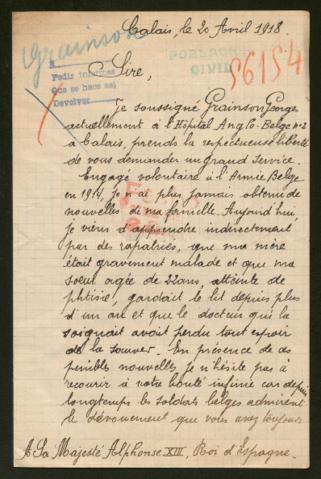 Calais, le 20 Avril 1918.
Grainson
POBLACION
CIVIL
56154
Sire,
Pedir informes
Que se hace así
Devolver
Je soussigné Grainson Georges
actuellement à l'Hôpital Anglo-Belge n°2
à Calais, prends la respectueuse liberté
de vous demander un grand service.
Engagé volontaire à l'Armée Belge
en 1914, je n'ai plus jamais obtenu de
nouvelles de ma famille. Aujourd'hui,
je viens d'apprendre indirectement
par des rapatriés, que ma mère
était gravement malade et que ma
soeur agée de 22 ans, atteinte de
phtisie, gardait le lit depuis plus
d'un an et que le docteur qui la
soignait avait perdu tout espoir
de la sauver. En présence de ces
pénibles nouvelles je n'hésite pas à
recourir à votre bonté infinie car depuis
longtemps les soldats belges admirent
le dévouement que vous avez toujours
A Sa Majesté Alphonse XIII, Roi d'Espagne.